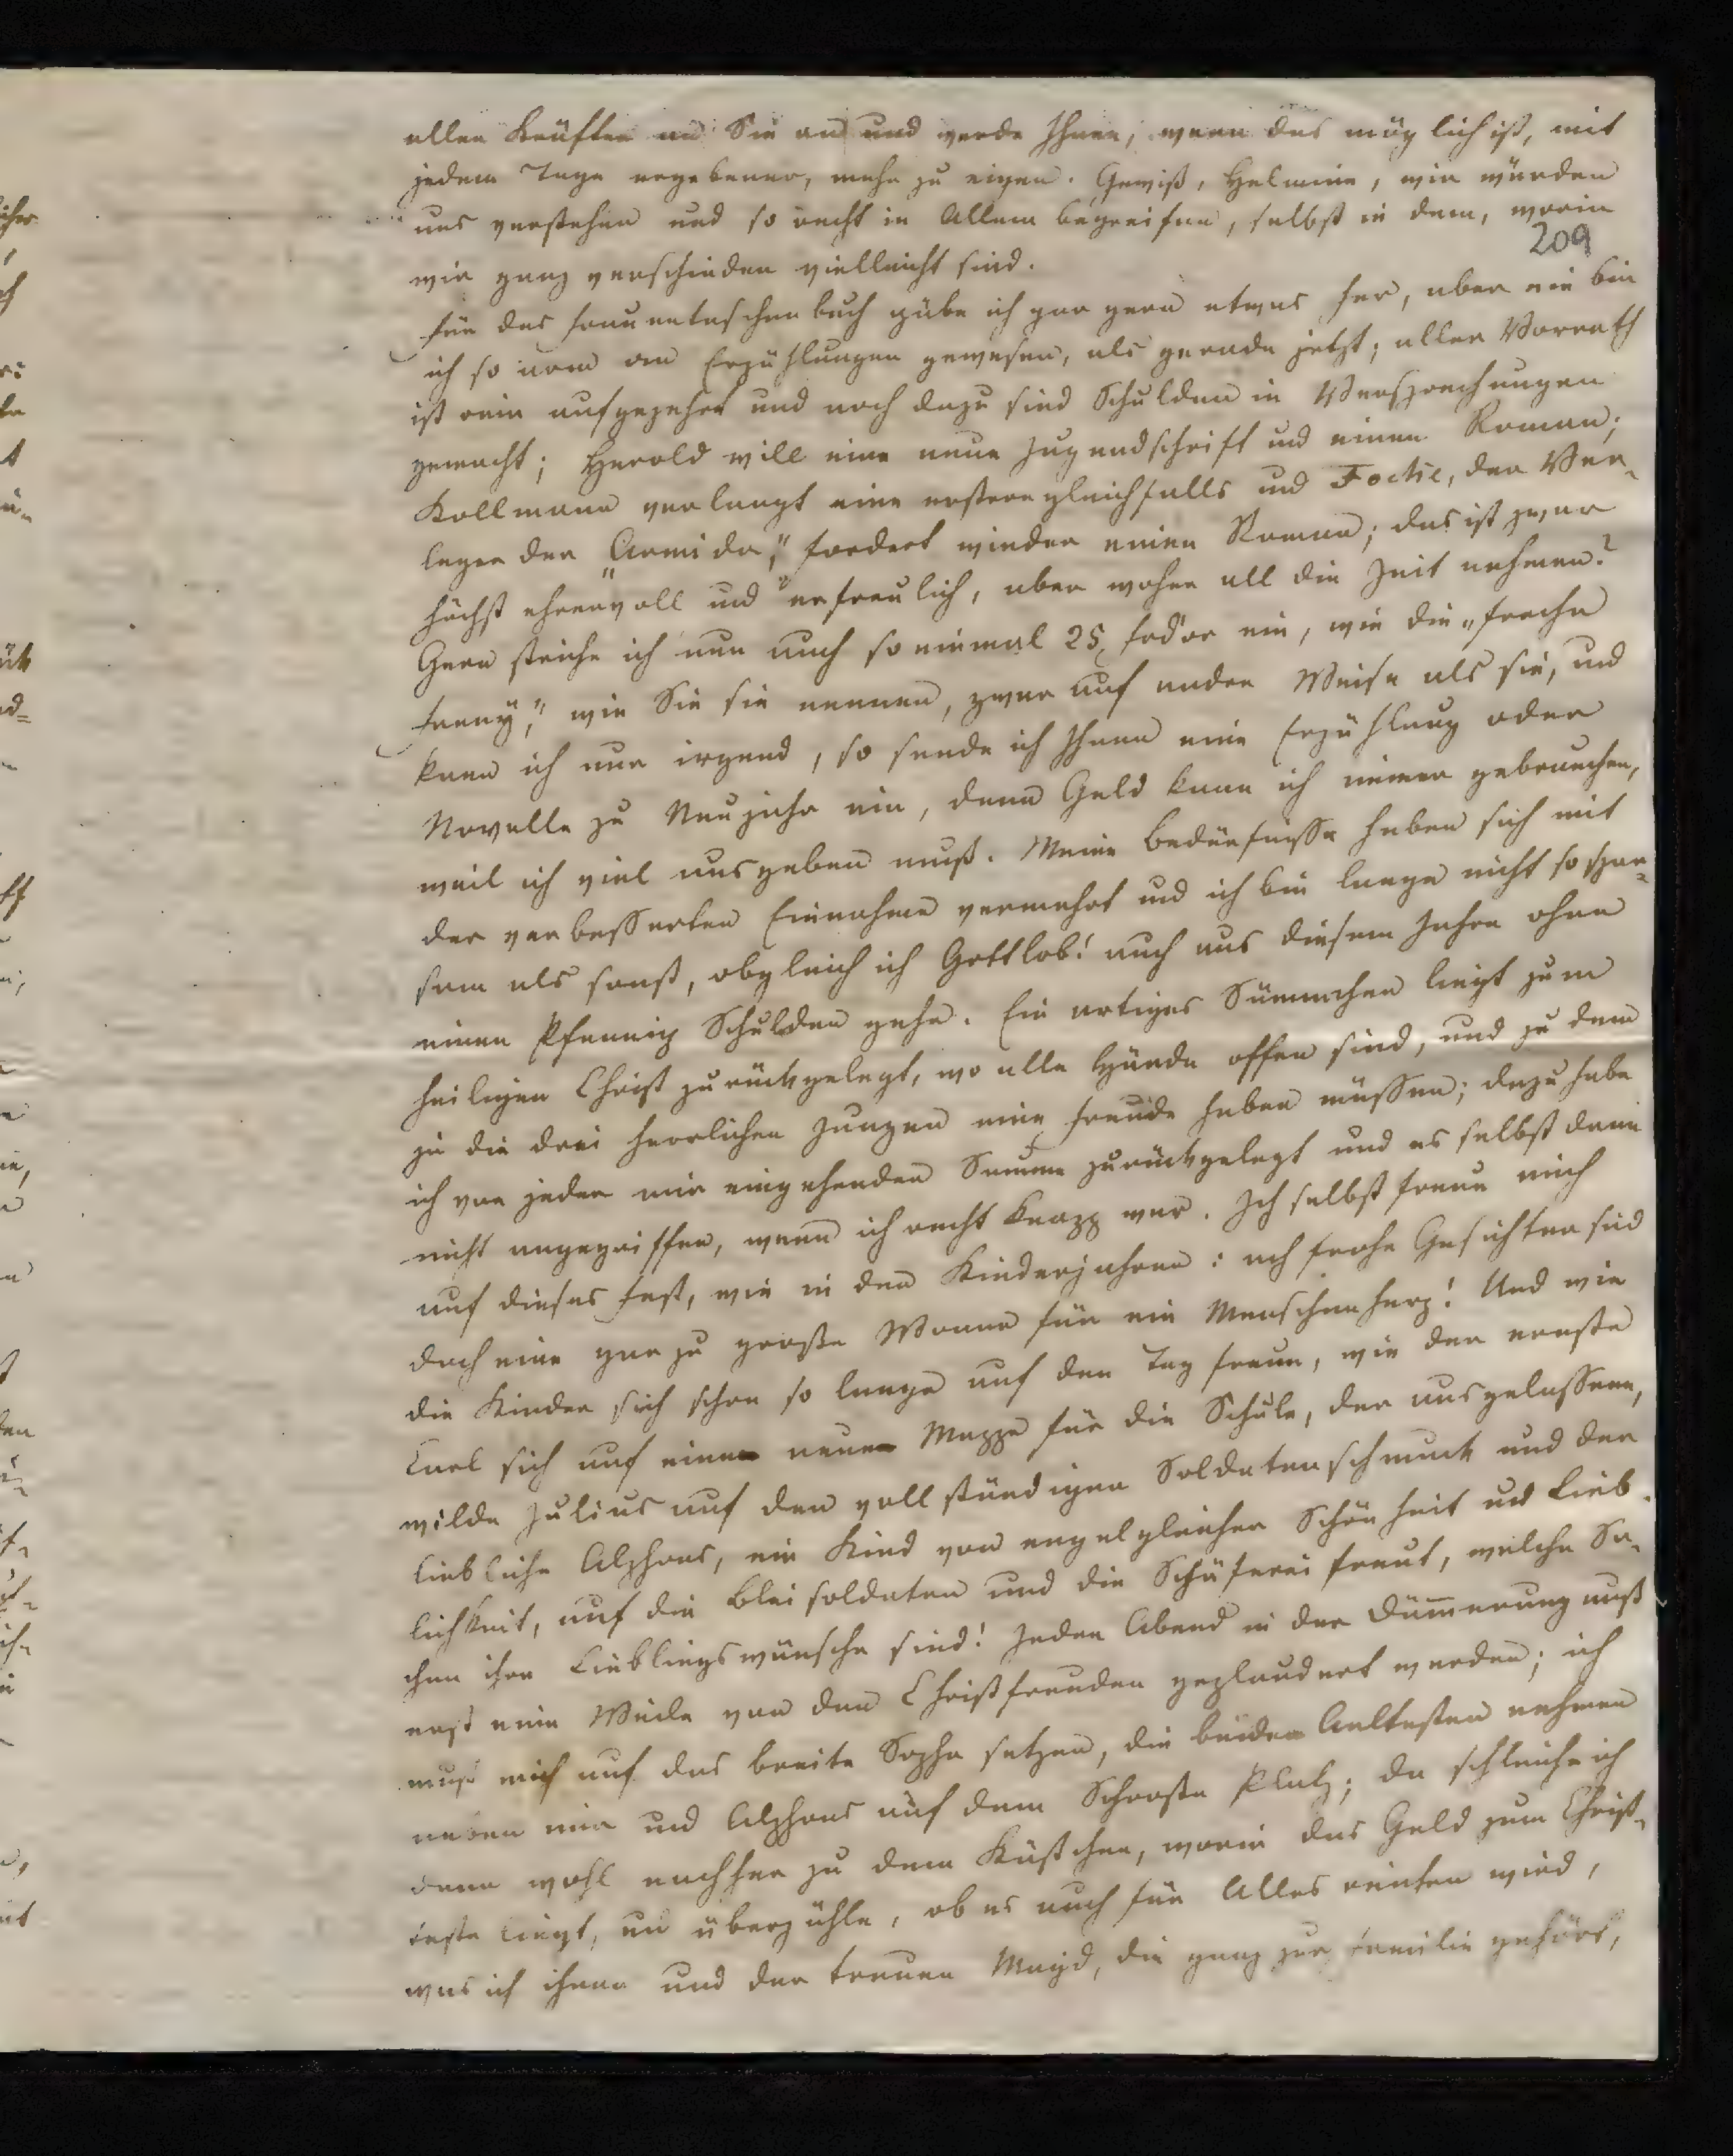 allen Kräften an Sie an und werde Ihnen, wenn das möglich ist, mit
jedem Tage ergebener, mehr zu eigen. Gewiß, Helmine, wir würden
uns verstehen und so recht in Allem begreifen, selbst in dem, worin
209
wir ganz verschieden vielleicht sind.
Für das Frauentaschenbuch gäbe ich gar gern etwas her, aber nie bin
ich so arm an Erzählungen gewesen, als gerade jetzt; aller Vorrath
ist rein aufgezehrt und noch dazu sind Schulden in Versprechungen
gemacht; Herold will eine neue Jugendschrift und einen Roman;
Kollmann verlangt eine erstere gleichfalls und Focke, der Ver-
leger der „Armida," fordert wieder einen Roman; das ist zwar
höchst ehrenvoll und erfreulich, aber woher all die Zeit nehmen?
Gern striche ich nun auch so einmal 25 Frd'or ein, wie die „freche
Fanny," wie Sie sie nennen, zwar auf andre Weise als sie, und
kann ich nur irgend, so sende ich Ihnen eine Erzählung oder
Novelle zu Neujahr ein, denn Geld kann ich immer gebrauchen,
weil ich viel ausgeben muß. Meine Bedürfnisse haben sich mit
der verbesserten Einnahme vermehrt und ich bin lange nicht so spar-
sam als sonst, obgleich ich Gottlob! auch aus diesem Jahre ohne
einen Pfennig Schulden gehe. Ein artiges Sümmchen liegt zum
heiligen Christ zurückgelegt, wo alle Hände offen sind, und zu dem
ja die drei herrlichen Jungen eine Freude haben müssen; dazu habe
ich von jeder mir eingehenden Summe zurückgelegt und es selbst dann
nicht angegriffen, wenn ich recht knapp war. Ich selbst freue mich
auf dieses Fest, wie in den Kinderjahren: ach frohe Gesichter sind
doch eine gar zu große Wonne für ein Menschenherz! Und wie
die Kinder sich schon so lange auf den Tag freun, wie der ernste
Carl sich auf eine neue Mappe für die Schule, der ausgelassene,
wilde Julius auf den vollständigen Soldatenschmuck und der
liebliche Alphons, ein Kind von engelgleicher Schönheit und Lieb-
lichkeit, auf die Bleisoldaten und die Schäferei freut, welche Sa-
chen ihre Lieblingswünsche sind! Jeden Abend in der Dämmerung muß
erst eine Weile von den Christfreuden geplaudert werden; ich
muß mich auf das breite Sopha setzen, die beiden Aeltesten nehmen
neben mir und Alphons auf dem Schooße Platz; da schleiche ich
dann wohl nachher zu dem Kästchen, worin das Geld zum Christ-
feste liegt, und überzähle, ob es auch für Alles reichen wird,
was ich ihnen und der treuen Magd, die ganz zur Familie gehört,